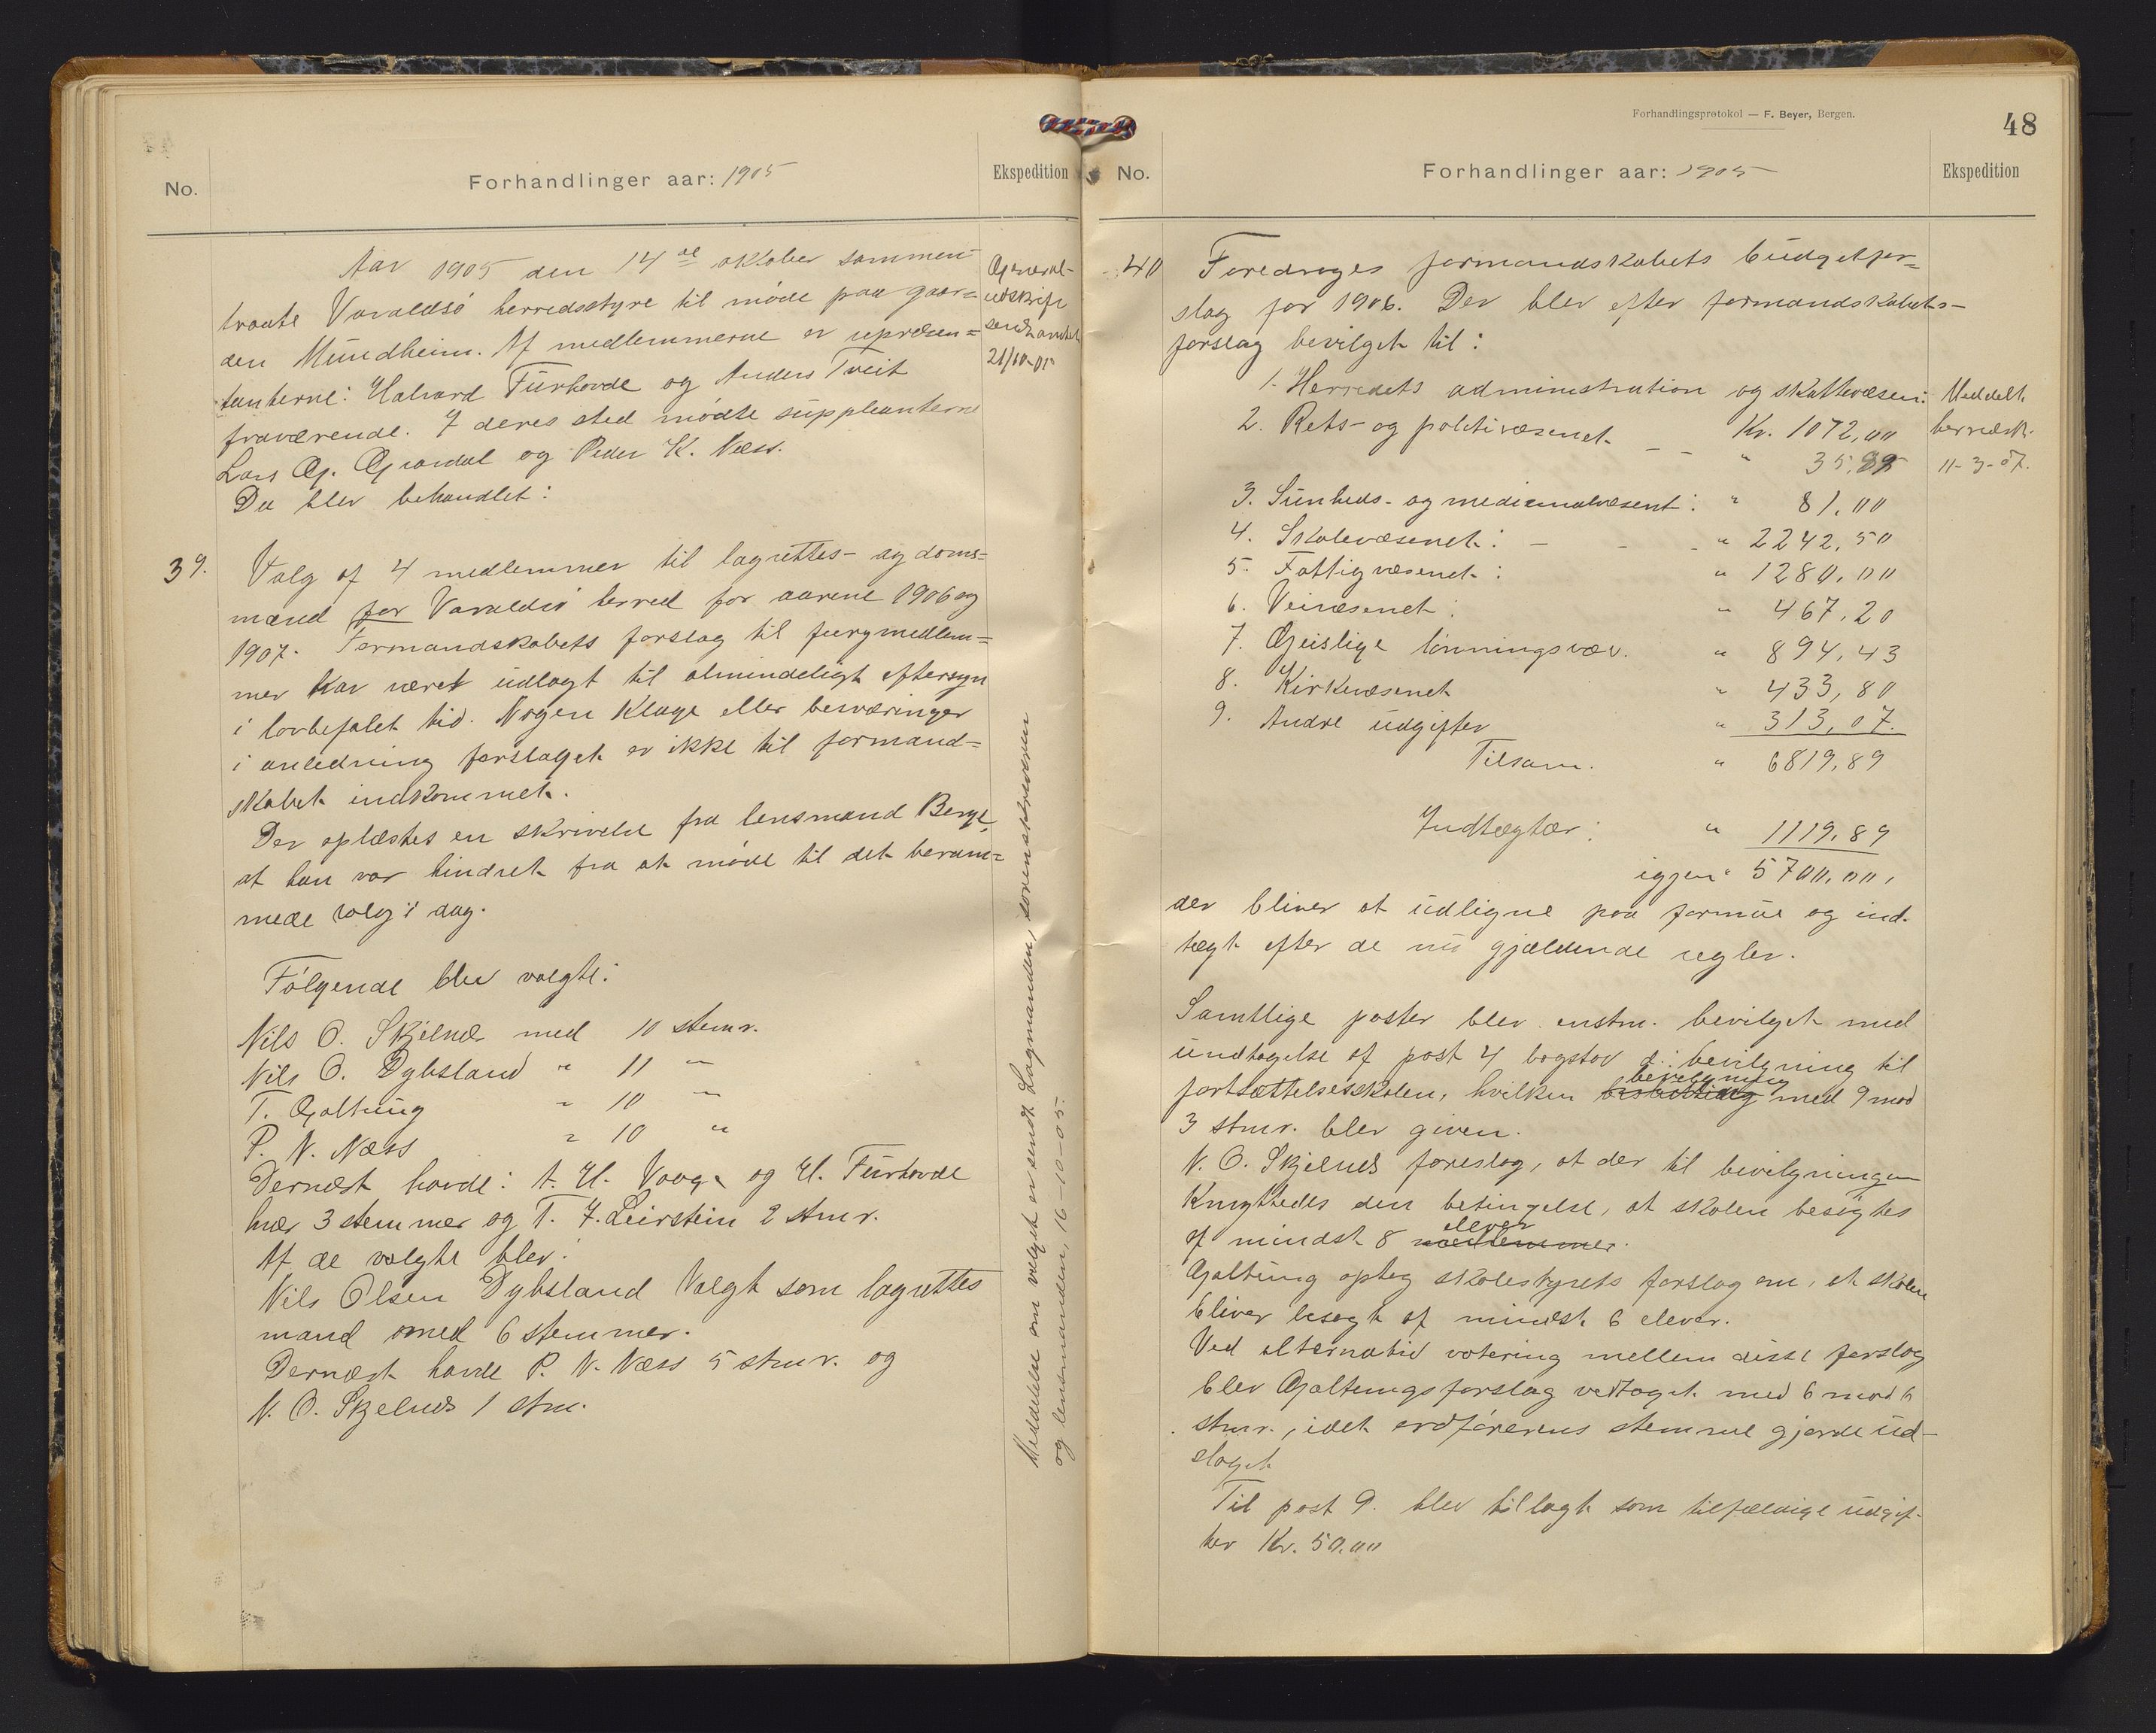 No.
Forhandlinger aar: 1905
Ekspedition
Aar 1905 den 14de oktober sammen-
traate Varaldsø herredsstyre til møde paa gaar=
den Mundheim. Af medlemmerne er repræsen=
tanterne: Halvard Furhovde og Anders Tveit
fraværende. I deres sted mødte suppleanterne
Lars G. Gravdal og Peder K. Næss.
Da blev behandlet:
General-
udskrift
sendt amtet
21/10-05
39.
Valg af 4 medlemmer til lagrettes- og doms=
mænd for Varaldsø herred for aarene 1906 og
1907. Formandskabets forslag til jurymedlem=
mer har været udlagt til almindeligt eftersyn
i lovbefalet tid. Nogen klage eller besværinger
i anledning forslaget er ikke til formand=
skabet indkommet.
Der oplæstes en skrivelse fra lensmand Berge,
at han var hindret fra at møde til det beram=
mede valg i dag.
Følgende blev valgte:
Nils O. Skjelnæs med 10 stemr.
Nils O. Dybsland " 11 "
T. Galtung " 10 "
P. N. Næss " 10 "
Dernæst havde: A. H. Vaage og H. Furhovde
hver 3 stemmer og T. J. Leirstein 2 stmr.
Af de valgte blev:
Nils Olsen Dybsland valgt som lagrettes
mand med 6 stemmer.
Dernæst havde P. N. Næss 5 stmr. og
N. O. Skjelnæs 1 stm.
Meddelelse om valget er sendt Lagmanden, sorenskriveren
og lensmanden, 16-10-05.
Forhandlingsprotokol — F. Beyer, Bergen.
48
No.
Forhandlinger aar: 1905
Ekspedition
40
Foredroges formandskabets budgetfor=
slag for 1906. Der blev efter formandskabets-
forslag bevilget til:
1. Herredets administration og skattevæsen:
Kr. 1072,00
2. Rets- og politivæsenet - - " 35,89
3. Sunheds- og medicinalvæsent: " 81,00
4. Skolevæsenet: - - - " 2242,50
5. Fattigvæsenet: " 1280,00
6. Veivæsenet: " 467,20
7. Geislige lønningsvæv. " 894,43
8. Kirkevæsenet " 433,80
9. Andre udgifter " 313,07.
Tilsam. " 6819,89
Indtægtær: " 1119,89
igjen " 5700,00,
Meddelt
herredsk.
11-3-07.
der bliver at udligne paa formue og ind-
tægt efter de nu gjældende regler.
Samtlige poster blev enstm. bevilget med
undtagelse af post 4 bogstav d: bevilgning til
fortsættelsesskolen, hvilken bevilgning med 9 mod
3 stmr. blev given.
N. O. Skjelnæs foreslog, at der til bevilgningen
knyttedes den betingelse, at skolen besøgtes
af mindst 8 medlemmer elever.
Galtung optog skolestyrets forslag om, at skolen
bliver besøgt af mindst 6 elever.
Ved alternativ votering mellem disse forslag
blev Galtungs forslag vedtaget med 6 mod 6
stmr., idet ordførerens stemme gjorde ud-
slaget
Til post 9. blev tillagt som tilfældige udgif-
ter Kr. 50,00